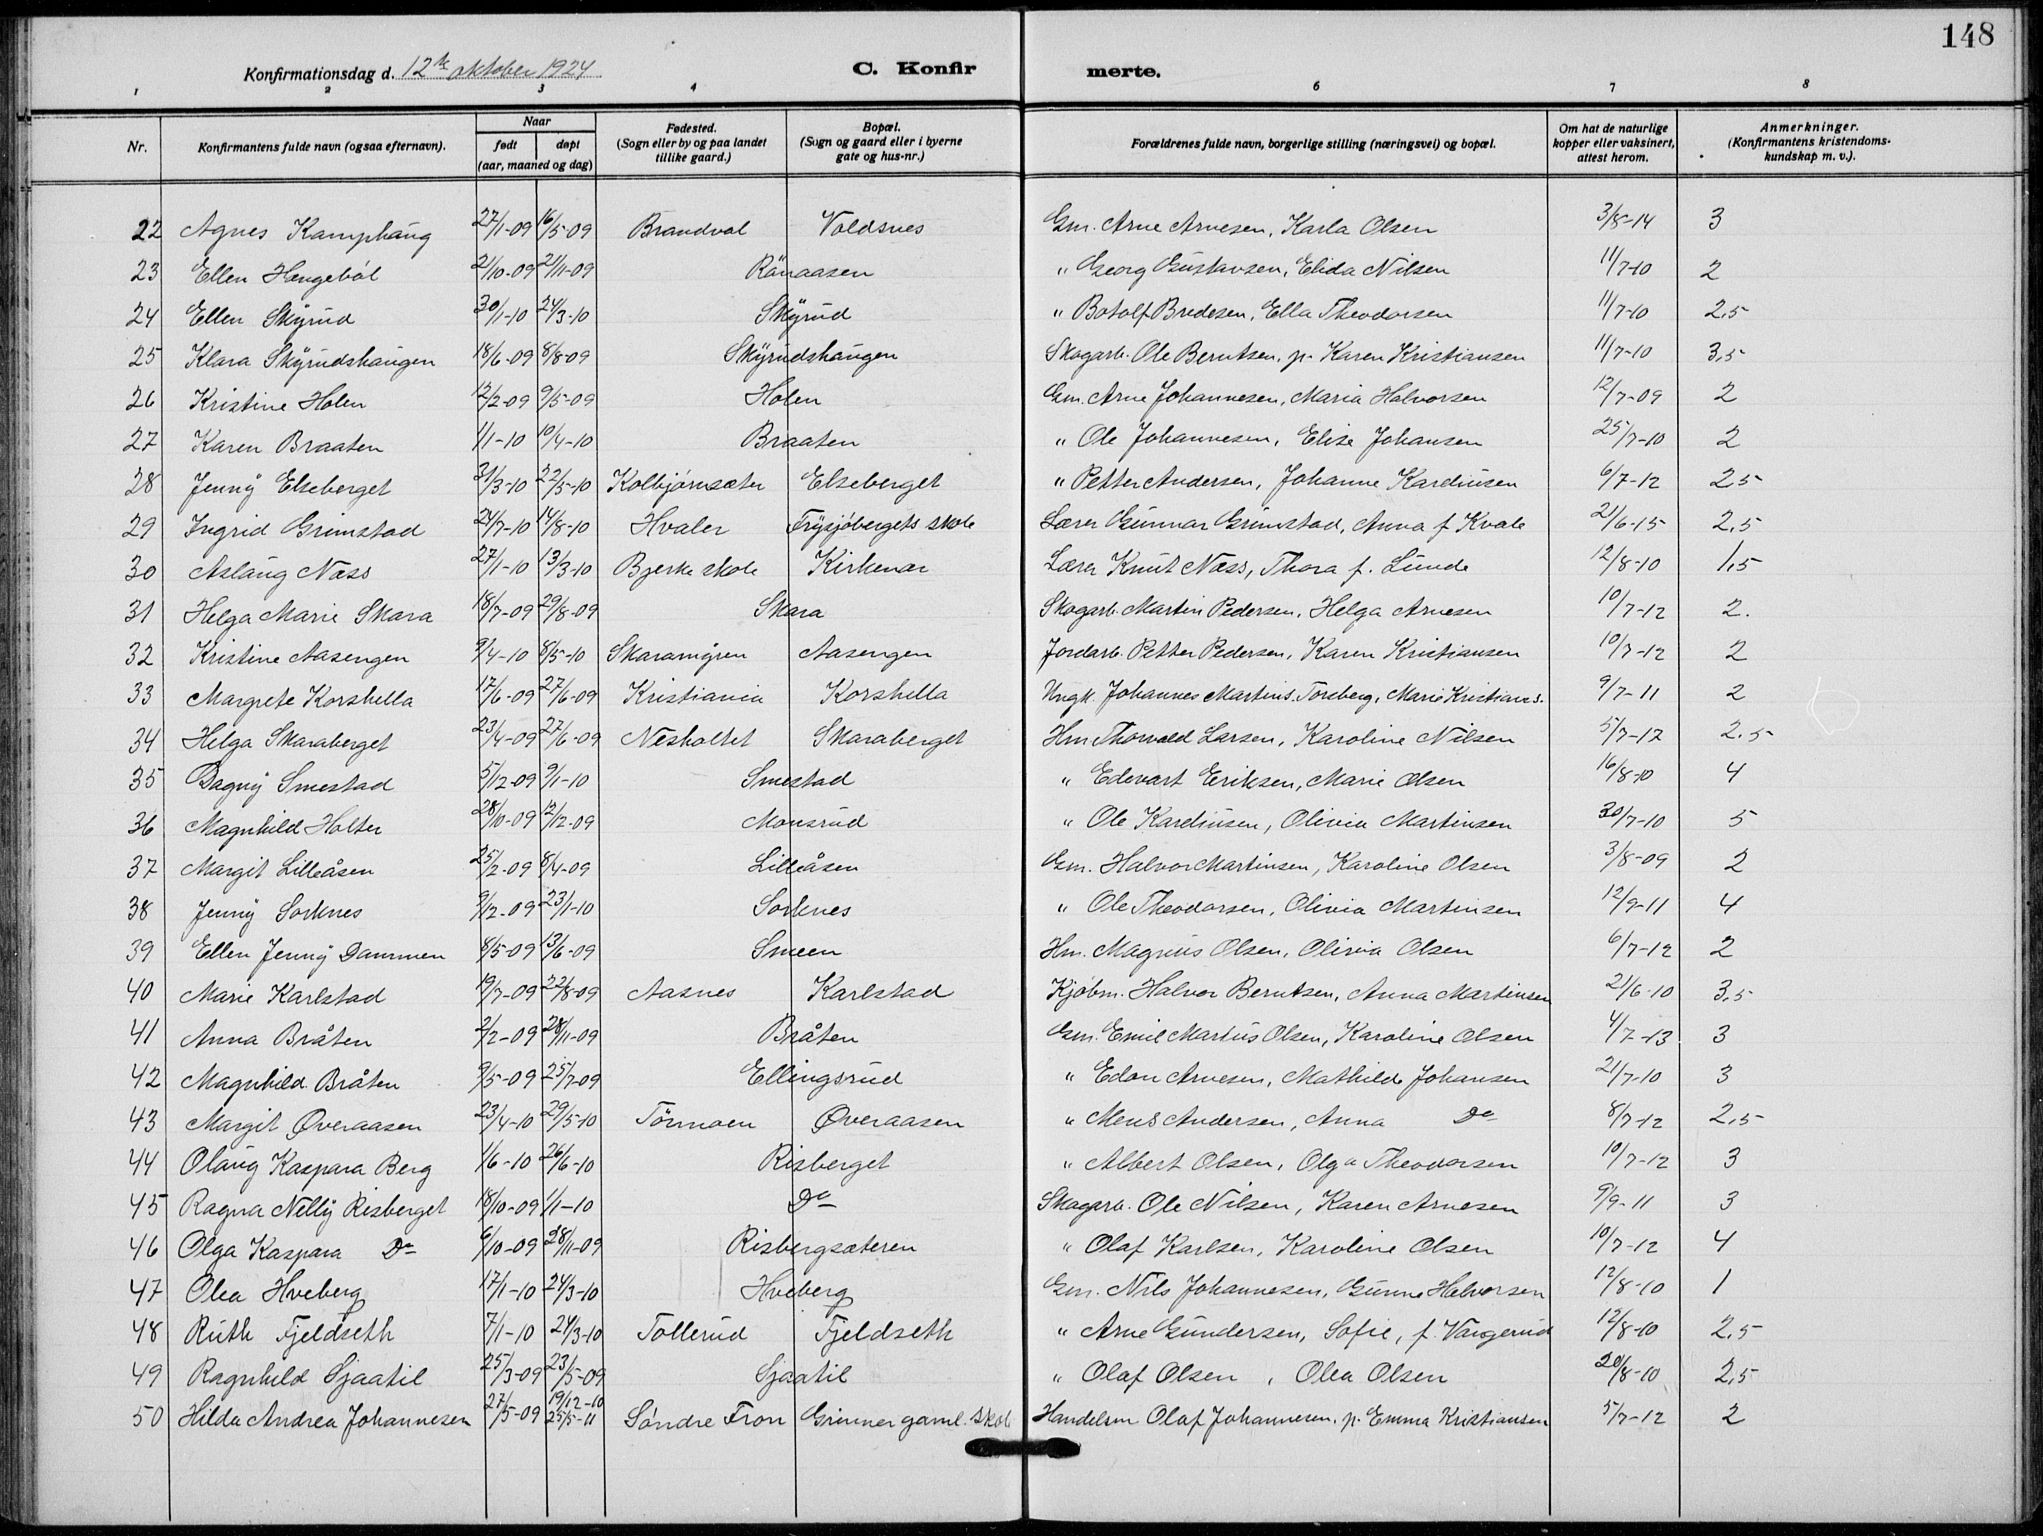 148
Konfirmationsdag d. 12te oktober 1924 C. Konfir merte.
1 2 3 4 6 7 8
Nr. Konfirmantens fulde navn (ogsaa efternavn). Naar født døpt (aar, maaned og dag) Fødested. (Sogn eller by og paa landet tillike gaard.) Bopæl. (Sogn og gaard eller i byerne gate og hus-nr.) Forældrenes fulde navn, borgerlige stilling (næringsvei) og bopæl. Om hat de naturlige kopper eller vaksinert, attest herom. Anmerkninger. (Konfirmantens kristendoms-kundskap m. v.).
22 Agnes Kamphaug 27/1-09 16/5-09 Brandval Voldsnes Gm. Arne Arnesen, Karla Olsen 3/8-14 3
23 Ellen Hengebøl 2/10-09 21/11-09 Rönaasen " Georg Gustavsen, Elida Nilsen 11/7-10 2
24 Ellen Skyrud 30/1-10 24/3-10 Skyrud " Botolf Bredesen, Ella Theodorsen 11/7-10 2,5
25 Klara Skyrudshaugen 18/6-09 8/8-09 Skyrudshaugen Skogarb. Ole Berntsen, p. Karen Kristiansen 11/7-10 3,5
26 Kristine Holen 12/2-09 9/5-09 Holen Gm. Arne Johannesen, Maria Halvorsen 12/7-09 2
27 Karen Braaten 1/1-10 10/4-10 Braaten " Ole Johannesen, Elise Johansen 25/7-10 2
28 Jenny Elseberget 31/3-10 22/5-10 Kolbjørnsæter Elseberget " Petter Andersen, Johanne Kardiusen 6/7-12 2,5
29 Ingrid Grimstad 24/7-10 14/8-10 Hvaler Frysjøbergets skole Lærer Gunnar Grimstad, Anna f. Kvale 21/6-15 2,5
30 Aslaug Næss 27/1-10 13/3-10 Bjerke skole Kirkenær Lærer Knut Næss, Thora f. Lunde 12/8-10 1,5
31 Helga Marie Skara 18/7-09 29/8-09 Skara Skogarb. Martin Pedersen, Helga Arnesen 10/7-12 2.
32 Kristine Aasengen 9/4-10 8/5-10 Skaramyren Aasengen Jordarb. Petter Pedersen, Karen Kristiansen 10/7-12 2
33 Margrete Korshella 17/6-09 27/6-09 Kristiania Korshella Ungk. Johannes Martins. Torsberg, Marie Kristians. 9/7-11 2
34 Helga Skaraberget 23/4-09 27/6-09 Nesholtet Skaraberget Hm. Thorvald Larsen, Karoline Nilsen 5/7-12 2.5
35 Dagny Smestad 5/12-09 9/1-10 Smestad " Edevart Eriksen, Marie Olsen 16/8-10 4
36 Magnhild Holter 28/10-09 12/12-09 Monsrud " Ole Kardiusen, Olivia Martinsen 30/7-10 5
37 Margit Lilleåsen 25/2-09 8/4-09 Lilleåsen Gm. Halvor Martinsen, Karoline Olsen 3/8-09 2
38 Jenny Sorknes 9/12-09 23/1-10 Sorknes " Ole Theodorsen, Olivia Martinsen 12/9-11 4
39 Ellen Jenny Dammen 8/5-09 13/6-09 Smeen Hm. Magnus Olsen, Olivia Olsen 6/7-12 2
40 Marie Karlstad 19/7-09 22/8-09 Aasnes Karlstad Kjøbm. Halvor Berntsen, Anna Martinsen 21/6-10 3,5
41 Anna Bråten 2/2-09 28/11-09 Bråten Gm. Emil Martius Olsen, Karoline Olsen 4/7-13 3
42 Magnhild Bråten 9/5-09 25/7-09 Ellingsrud " Edon Arnesen, Mathilde Johansen 21/7-10 3
43 Margit Øveraasen 23/4-10 29/5-10 Törmoen Øveraasen " Mens Andersen, Anna Do 8/7-12 2,5
44 Olaug Kaspara Berg 1/6-10 26/6-10 Risberget " Albert Olsen, Olga Theodorsen 10/7-12 3
45 Ragna Nelly Risberget 18/10-09 1/1-10 Do Skogarb. Ole Nilsen, Karen Arnesen 9/9-11 3
46 Olga Kaspara Do 6/10-09 28/11-09 Risbergsæteren " Olaf Karlsen, Karoline Olsen 10/7-12 4
47 Olea Hveberg 17/1-10 24/3-10 Hveberg Gm. Nils Johannesen, Gunne Halvorsen 12/8-10 1
48 Ruth Fjeldseth 7/1-10 24/3-10 Tollerud Fjeldseth " Arne Gundersen, Sofie, f. Vangerud 12/8-10 2,5
49 Ragnhild Sjaatil 25/3-09 23/5-09 Sjaatil " Olaf Olsen, Olea Olsen 20/8-10 2,5
50 Hilda Andrea Johannesen 27/5-09 19/12-10 25/5-11 Søndre Fron Grinner gaml. skole Handelsm Olaf Johannesen, p. Emma Kristiansen 5/7-12 2